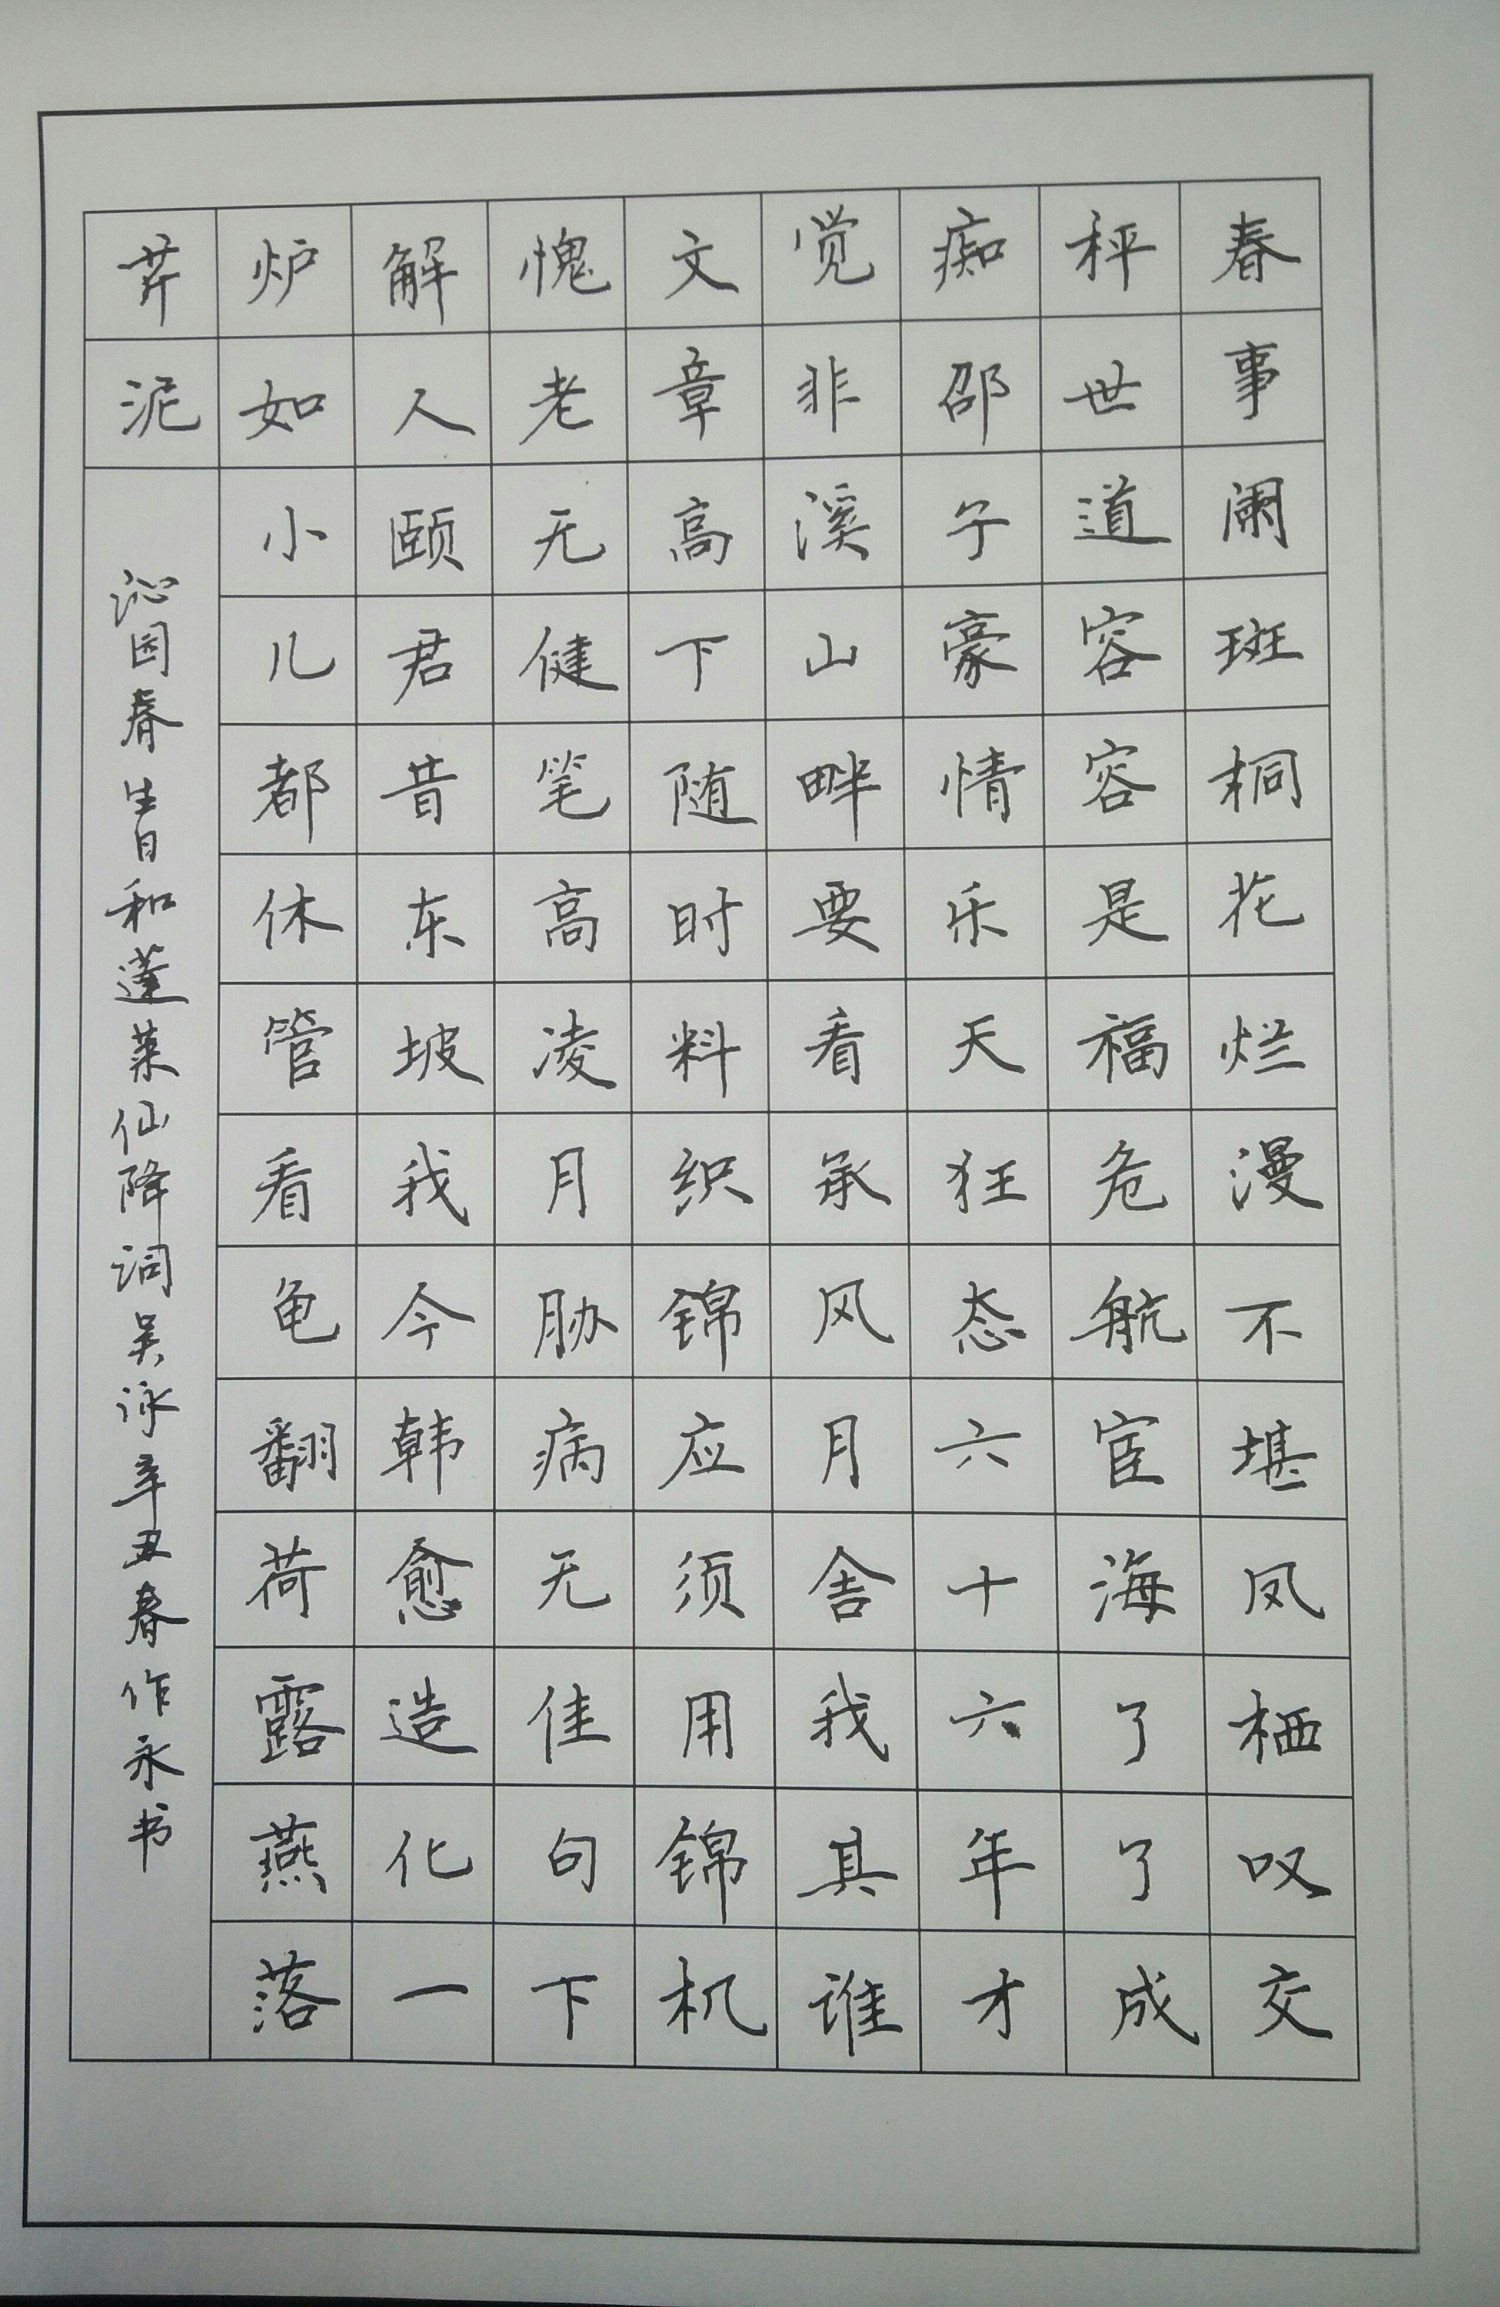 春事阑斑桐花烂漫不堪凤栖叹交
秤世道容容是福危航宦海了了成
痴邵子豪情乐天狂态六十六年才
觉非溪山畔要看承风月舍我其谁
文章高下随时料织锦应须用锦机
愧老无健笔高凌月胁病无佳句下
解人颐君昔东坡我今韩愈造化一
炉如小儿都休管看龟翻荷露燕落
芹泥
沁园春生日和蓬莱仙降词吴泳辛丑春作永书